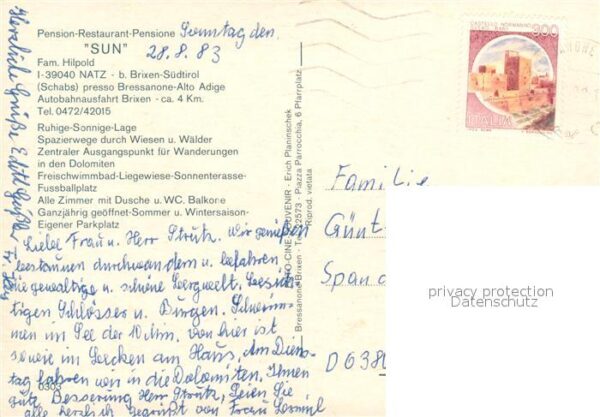 Pension-Restaurant-Pensione
"SUN"
Fam. Hilpold
I-39040 NATZ - b. Brixen-Südtirol
(Schabs) presso Bressanone-Alto Adige
Autobahnausfahrt Brixen - ca. 4 Km.
Tel. 0472/42015
Ruhige-Sonnige-Lage
Spazierwege durch Wiesen u. Wälder
Zentraler Ausgangspunkt für Wanderungen
in den Dolomiten
Freischwimmbad-Liegewiese-Sonnenterasse-
Fussballplatz
Alle Zimmer mit Dusche u. WC, Balkone
Ganzjährig geöffnet-Sommer u. Wintersaison-
Eigener Parkplatz
Sonntag den
28.8.83
Liebe Frau u. Herr Strutz. Wir genießen
bestaunen durchwandern u. befahren
die gewaltige u. schöne Bergwelt, besich
tigen Schlösser u. Burgen. Schwim-
men im See der 10 Min. von hier ist
sowie im Becken am Haus, Am Diens-
tag fahren wir in die Dolomiten. Ihnen
gute Besserung Herr Strutz, Seien Sie
alle herzlich gegrüßt von Frau
0303
Herzliche Grüße Edith
SOUVENIR - Erich Planinschek
Bressanone-Brixen - Tel. 22573 - Piazza Parrocchia, 6 Pfarrplatz
Riprod. vietata
CASTELLO NORMANNO
300
ITALIA
Familie
Günt
Span
D 638
privacy protection
Datenschutz